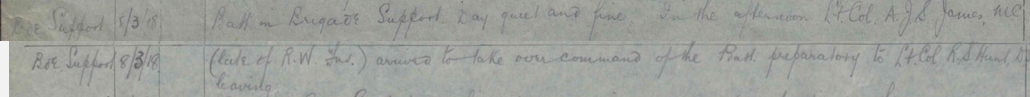 Bde Support 8/3/18 Batt in Brigade Support. Day quiet and fine. In the afternoon Lt Col. A.J.S. James, MC
Bde Support 8/3/18 (late of R.W. Fus.) arrived to take over command of the Batt. preparatory to Lt. Col R.S. Hunt, D
leaving